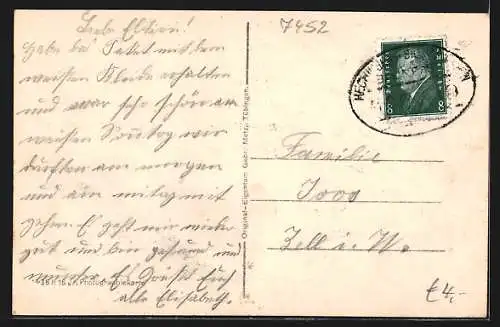 Liebe Eltern!
Habe das Paket mit dem
weißen Kleide erhalten
und war sehr schön am
weißen Sonntag wir
durften am morgen
und am mitag mit
gehen. Es geht mir
gut und bin gesund und
munter. Es Grüßt Euch
alle Elisabeth.
7452
8 8
Original-Eigentum Gebr. Metz, Tübingen.
Familie
Joos
Zell i. W.
€4,-